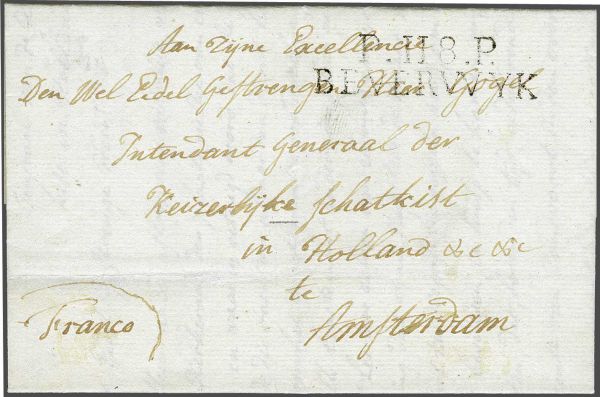 Aan Zijne Excellencie
P.118.P.
BEVERWYK
Den Wel Eedel Gestrengen Heer Gogel
Intendant Generaal der
Keizerlijke schatkist
in Holland &c &c
te
Amsterdam
Franco